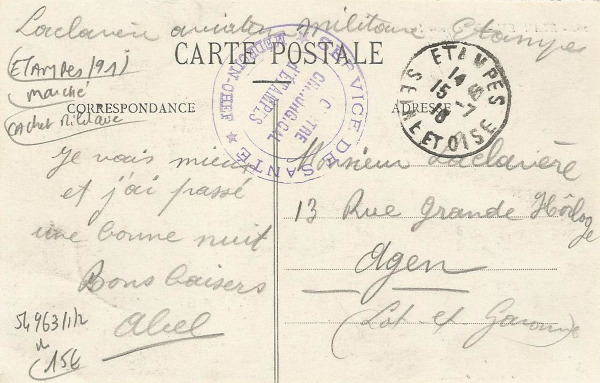 Laclavère aviation militaire Etampes
CARTE POSTALE
(ETAMPES/91)
marché
cachet militaire
CORRESPONDANCE
ADRESSE
SERVICE DE SANTÉ
CHIRURGICAL
D'ETAMPES
ETAMPES
14
15-7
SEINE ET OISE
Je vais mieux
et j'ai passé
une bonne nuit
Bons baisers
Abel
Monsieur Laclavère
13 Rue Grande Horloge
Agen
(Lot et Garonne)
54963/1/2
15€